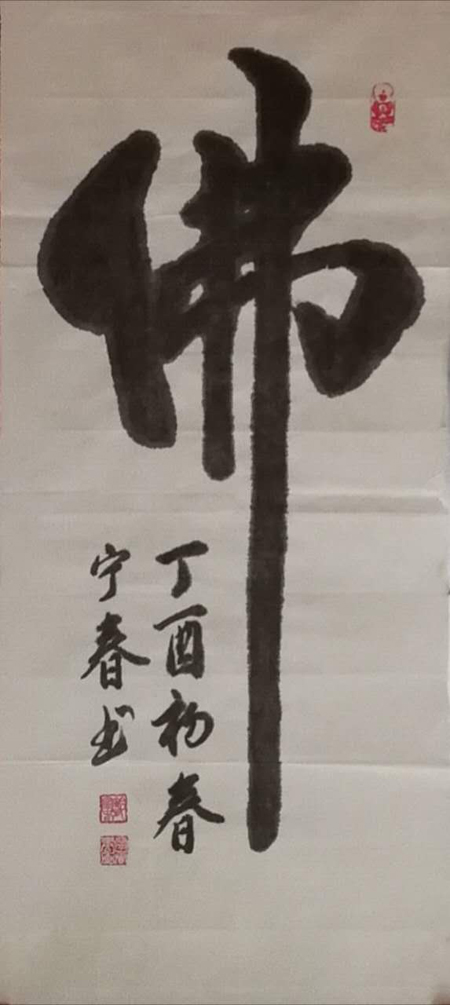 佛
丁酉初春
宁春书